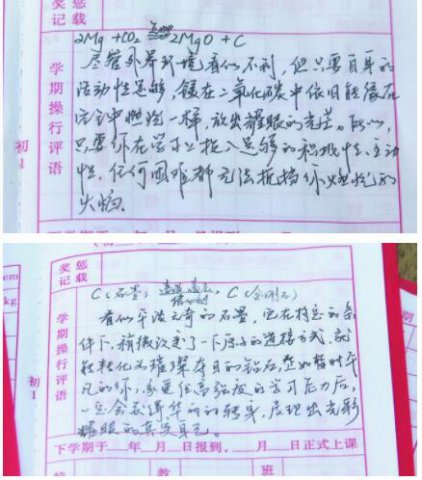 奖惩
记载
2Mg + CO₂ 点燃 2MgO + C
学期操行评语
尽管外界环境看似不利，但只要自身的
活动性足够，镁在二氧化碳中依旧能像在
空气中燃烧一样，放出耀眼的光芒。所以，
只要你在学习上投入足够的积极性、主动
性，任何困难都无法抵挡你燃烧的
火焰.
初1
奖惩
记载
C (石墨) 高温 高压 催化剂 C (金刚石)
学期操行评语
看似平淡无奇的石墨，它在特定的条
件下，稍微改变了一下原子的连接方式，就
能转化为璀璨夺目的钻石，正如暂时平
凡的你，承受住高强度的学习压力后，
一定会获得华丽的转身，展现出光彩
耀眼的真实自己。
初1
下学期于__年__月__日报到，__月__日正式上课
教
班
cm
kg